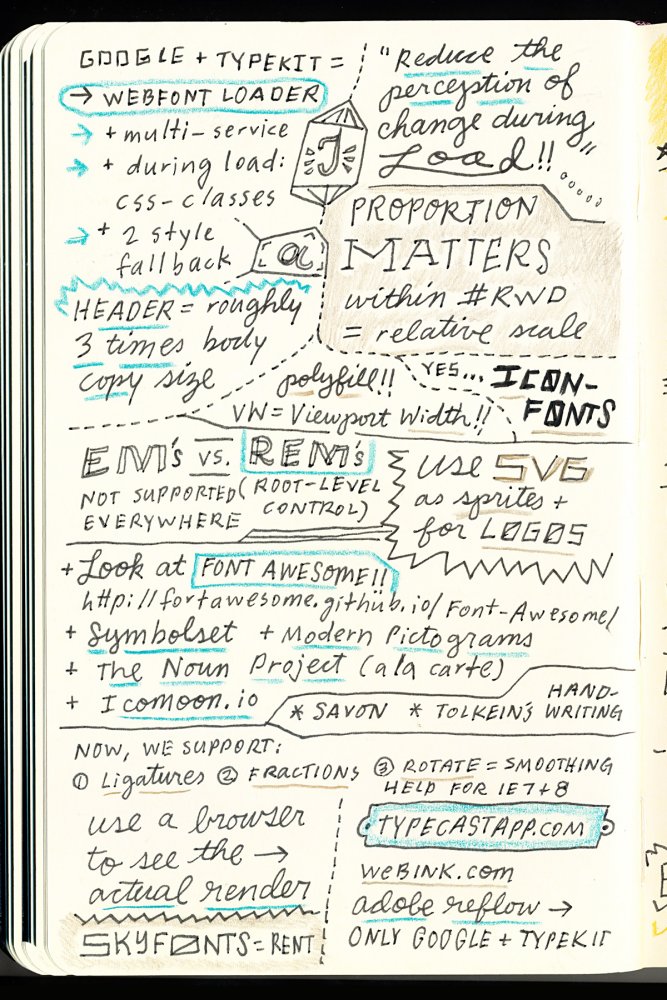 GOOGLE + TYPEKIT =
→ WEBFONT LOADER
→ + multi-service
→ + during load:
css-classes
→ + 2 style
fallback
"Reduce the
perception of
change during
Load!!"
J
a
PROPORTION
MATTERS
within #RWD
= relative scale
HEADER = roughly
3 times body
copy size
polyfill!!
VW = Viewport Width!!
YES... ICON-
FONTS
EM's vs. REM's
NOT SUPPORTED (ROOT-LEVEL
EVERYWHERE CONTROL)
use SVG
as sprites +
for LOGOS
+ Look at FONT AWESOME!!
http://fortawesome.github.io/Font-Awesome/
+ Symbolset + Modern Pictograms
+ The Noun Project (a la carte)
+ Icomoon.io
* SAVON * TOLKEIN'S HAND-
WRITING
NOW, WE SUPPORT:
① Ligatures ② FRACTIONS ③ ROTATE = SMOOTHING
HELP FOR IE7+8
use a browser
to see the →
actual render
SKYFONTS = RENT
TYPECASTAPP.COM
WeBINK.com
adobe reflow →
ONLY GOOGLE + TYPEKIT